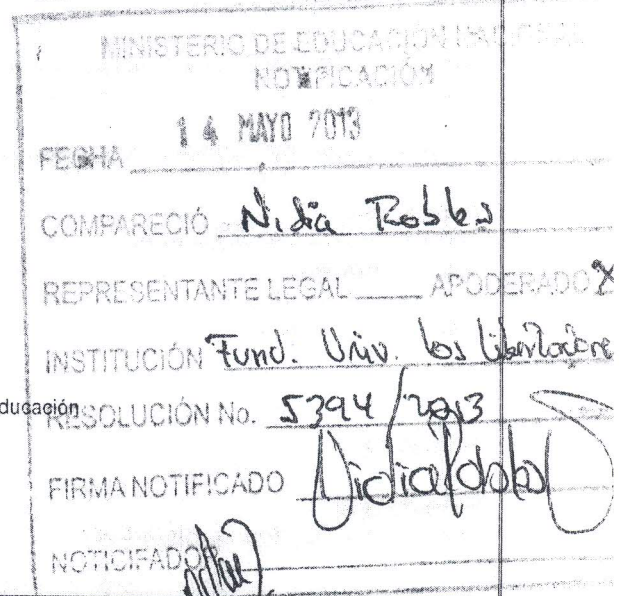 MINISTERIO DE EDUCACIÓN NACIONAL
NOTIFICACIÓN
FECHA 14 MAYO 2013
COMPARECIÓ Nidia Robles
REPRESENTANTE LEGAL ____ APODERADO X
INSTITUCIÓN Fund. Univ. los Libertadore
ducación
RESOLUCIÓN No. 5394/2013
FIRMA NOTIFICADO Nidia Robles
NOTICIFADOR